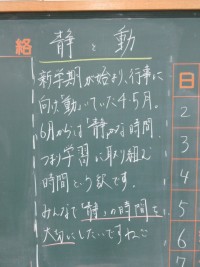 静と動
絡
新学期が始まり、行事に
向け"動"いていた4・5月。
6月からは"静"かな時間。
つまり学習に取り組む
時間という訳です。
みんなで"静"の時間を
大切にしたいですね
日
2
3
4
5
6
7